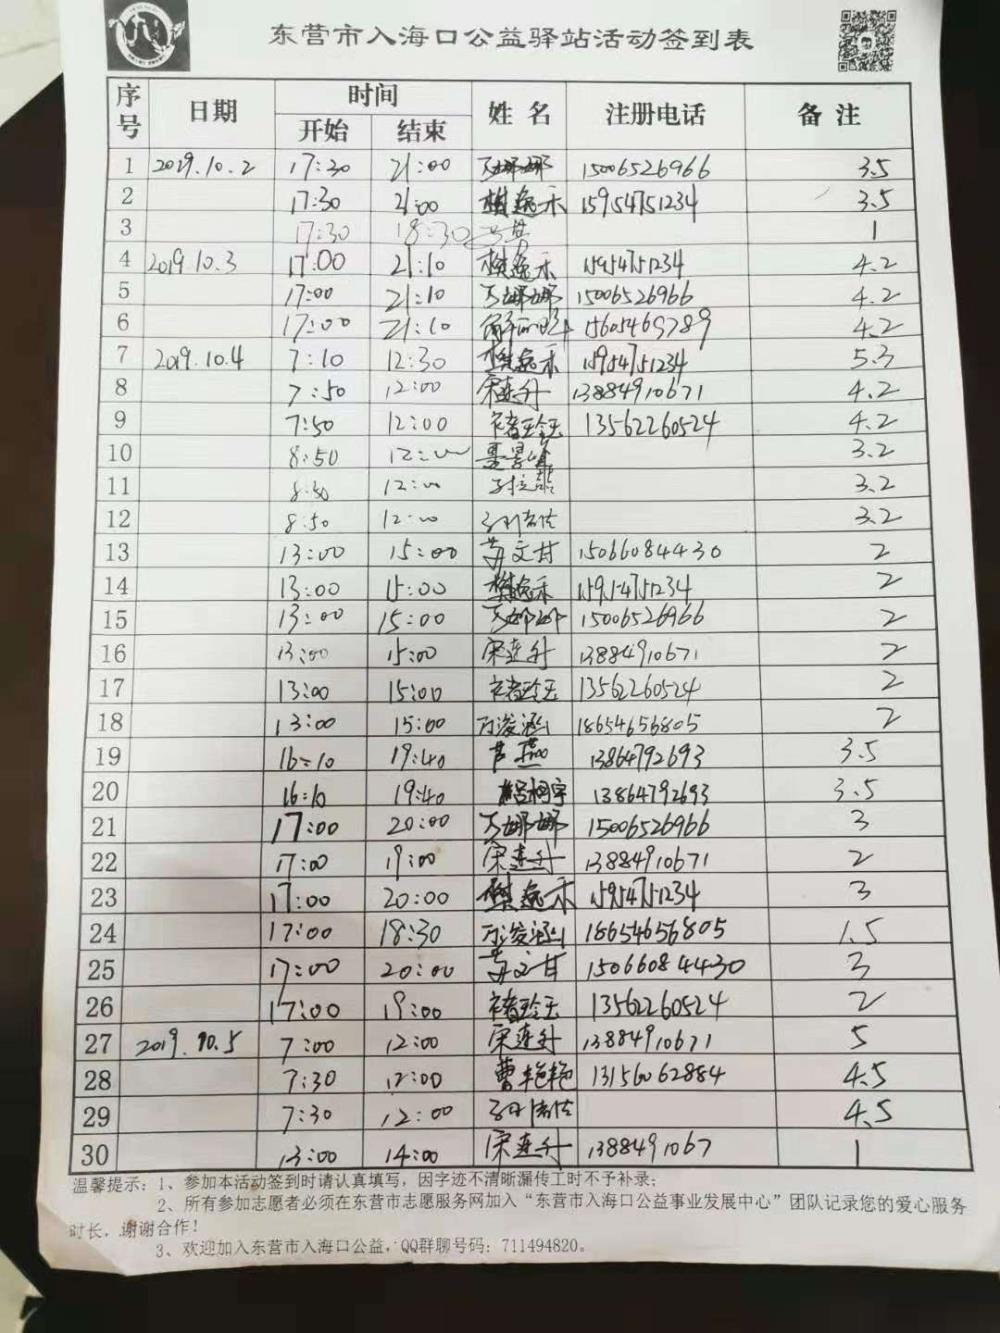 东营市入海口公益驿站活动签到表
序号 日期 时间 姓名 注册电话 备注
开始 结束
1 2019.10.2 17:30 21:00 万娜娜 15006526966 3.5
2 17:30 21:00 樊逸禾 15954751234 3.5
3 17:30 18:30 1
4 2019.10.3 17:00 21:10 樊逸禾 15954751234 4.2
5 17:00 21:10 万娜娜 15006526966 4.2
6 17:00 21:10 15605469789 4.2
7 2019.10.4 7:10 12:30 樊逸禾 15954751234 5.3
8 7:50 12:00 宋连升 13884910671 4.2
9 7:50 12:00 褚玲玉 13562260524 4.2
10 8:50 12:00 3.2
11 8:50 12:00 3.2
12 8:50 12:00 3.2
13 13:00 15:00 苏文甘 15066084430 2
14 13:00 15:00 樊逸禾 15954751234 2
15 13:00 15:00 万娜娜 15006526966 2
16 13:00 15:00 宋连升 13884910671 2
17 13:00 15:00 褚玲玉 13562260524 2
18 13:00 15:00 万浚涵 18654656805 2
19 16:10 19:40 芦燕 13864792693 3.5
20 16:10 19:40 13864792693 3.5
21 17:00 20:00 万娜娜 15006526966 3
22 17:00 19:00 宋连升 13884910671 2
23 17:00 20:00 樊逸禾 15954751234 3
24 17:00 18:30 万浚涵 18654656805 1.5
25 17:00 20:00 苏文甘 15066084430 3
26 17:00 19:00 褚玲玉 13562260524 2
27 2019.10.5 7:00 12:00 宋连升 13884910671 5
28 7:30 12:00 曹艳艳 13156062884 4.5
29 7:30 12:00 4.5
30 13:00 14:00 宋连升 1388491067 1
温馨提示：1、参加本活动签到时请认真填写，因字迹不清晰漏传工时不予补录；
2、所有参加志愿者必须在东营市志愿服务网加入“东营市入海口公益事业发展中心”团队记录您的爱心服务
时长，谢谢合作！
3、欢迎加入东营市入海口公益，QQ群聊号码：711494820。